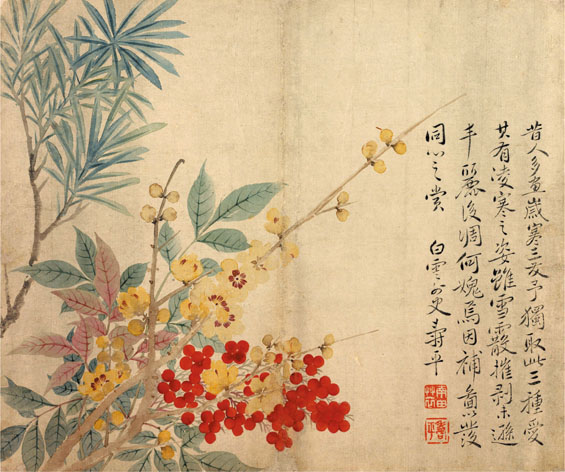 昔人多畫歲寒三友予獨取此三種愛
其有凌寒之姿雖雪霰摧剥未遜
丰麗後凋何媿焉因補圖以發
同心之賞　白雲外史壽平
壽平